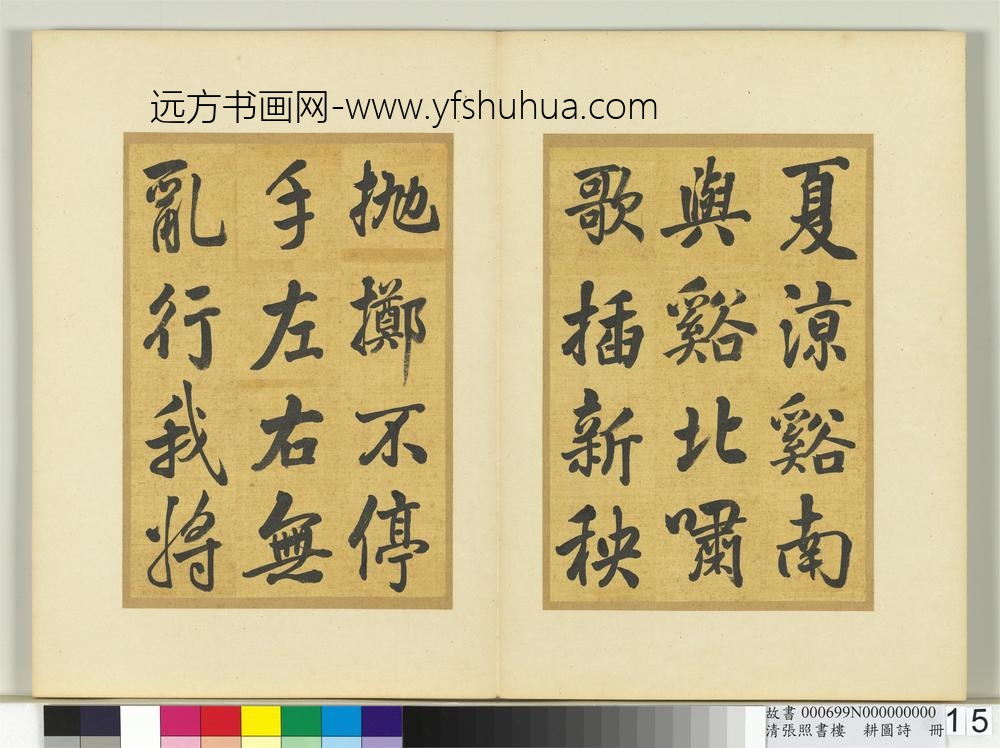 远方书画网-www.yfshuhua.com
夏涼谿南
與谿北嘯
歌插新秧
抛擲不停
手左右無
亂行我將
故書 000699N000000000
清張照書樓 耕圖詩 冊
15